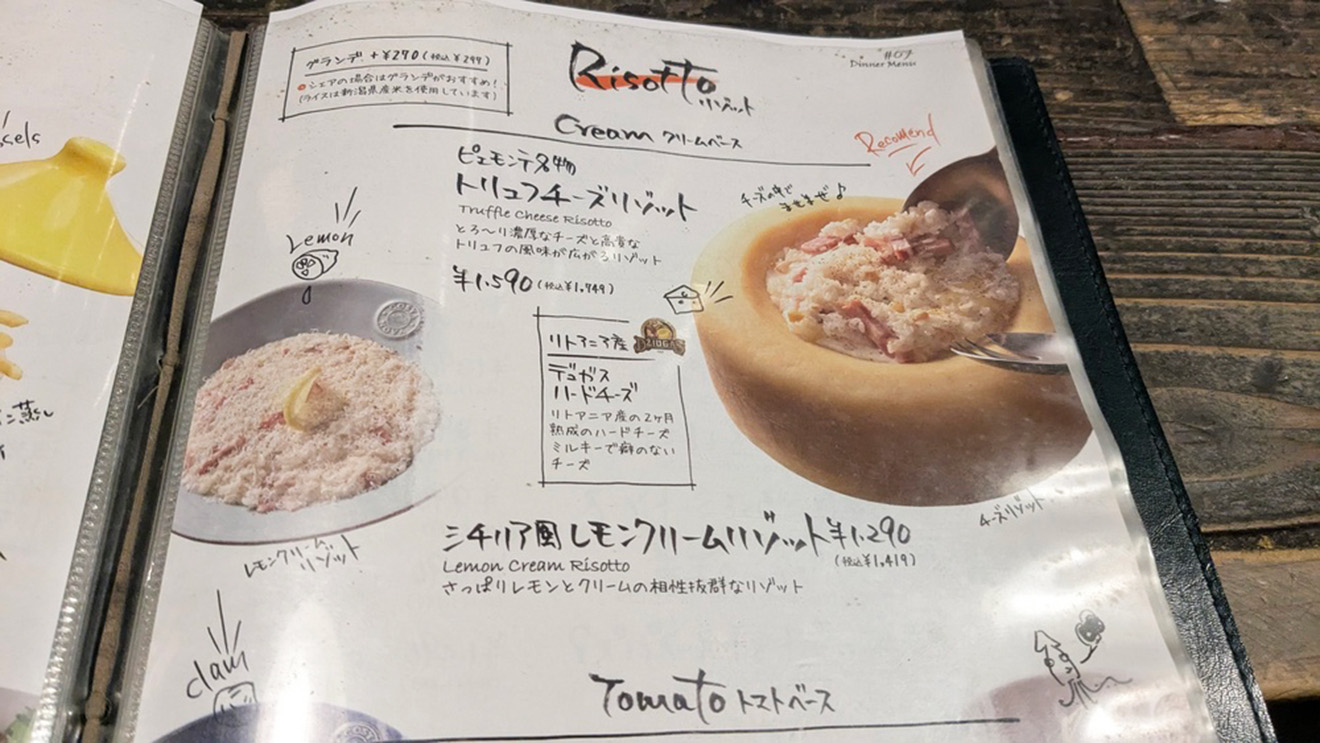 ssels
ン蒸し
グランデ +¥270(税込¥297)
シェアの場合はグランデがおすすめ!
(ライスは新潟県産米を使用しています)
Risotto
リゾット
#07
Dinner Menu
Cream クリームベース
Recomend
ピエモンテ名物
トリュフチーズリゾット
Truffle Cheese Risotto
とろ〜り濃厚なチーズと高貴な
トリュフの風味が広がるリゾット
¥1.590(税込¥1,749)
チーズの中で
まぜまぜ♪
Lemon
リトアニア産
DZIUGAS
デュガス
ハードチーズ
リトアニア産の2ヶ月
熟成のハードチーズ
ミルキーで癖のない
チーズ
チーズリゾット
レモンクリーム
リゾット
シチリア風レモンクリームリゾット¥1.290
(税込¥1,419)
Lemon Cream Risotto
さっぱりレモンとクリームの相性抜群なリゾット
clam
Tomato トマトベース